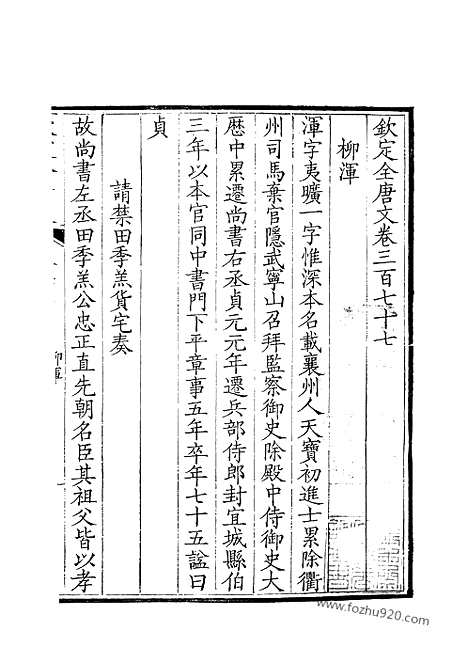 欽定全唐文卷三百七十七
柳渾
渾字夷曠一字惟深本名載襄州人天寶初進士累除衢
州司馬棄官隱武寧山召拜監察御史除殿中侍御史大
歷中累遷尚書右丞貞元元年遷兵部侍郎封宜城縣伯
三年以本官同中書門下平章事五年卒年七十五諡曰
貞
請禁田季羔貨宅奏
故尚書左丞田季羔公忠正直先朝名臣其祖父皆以孝
柳渾
www.fozhu920.com